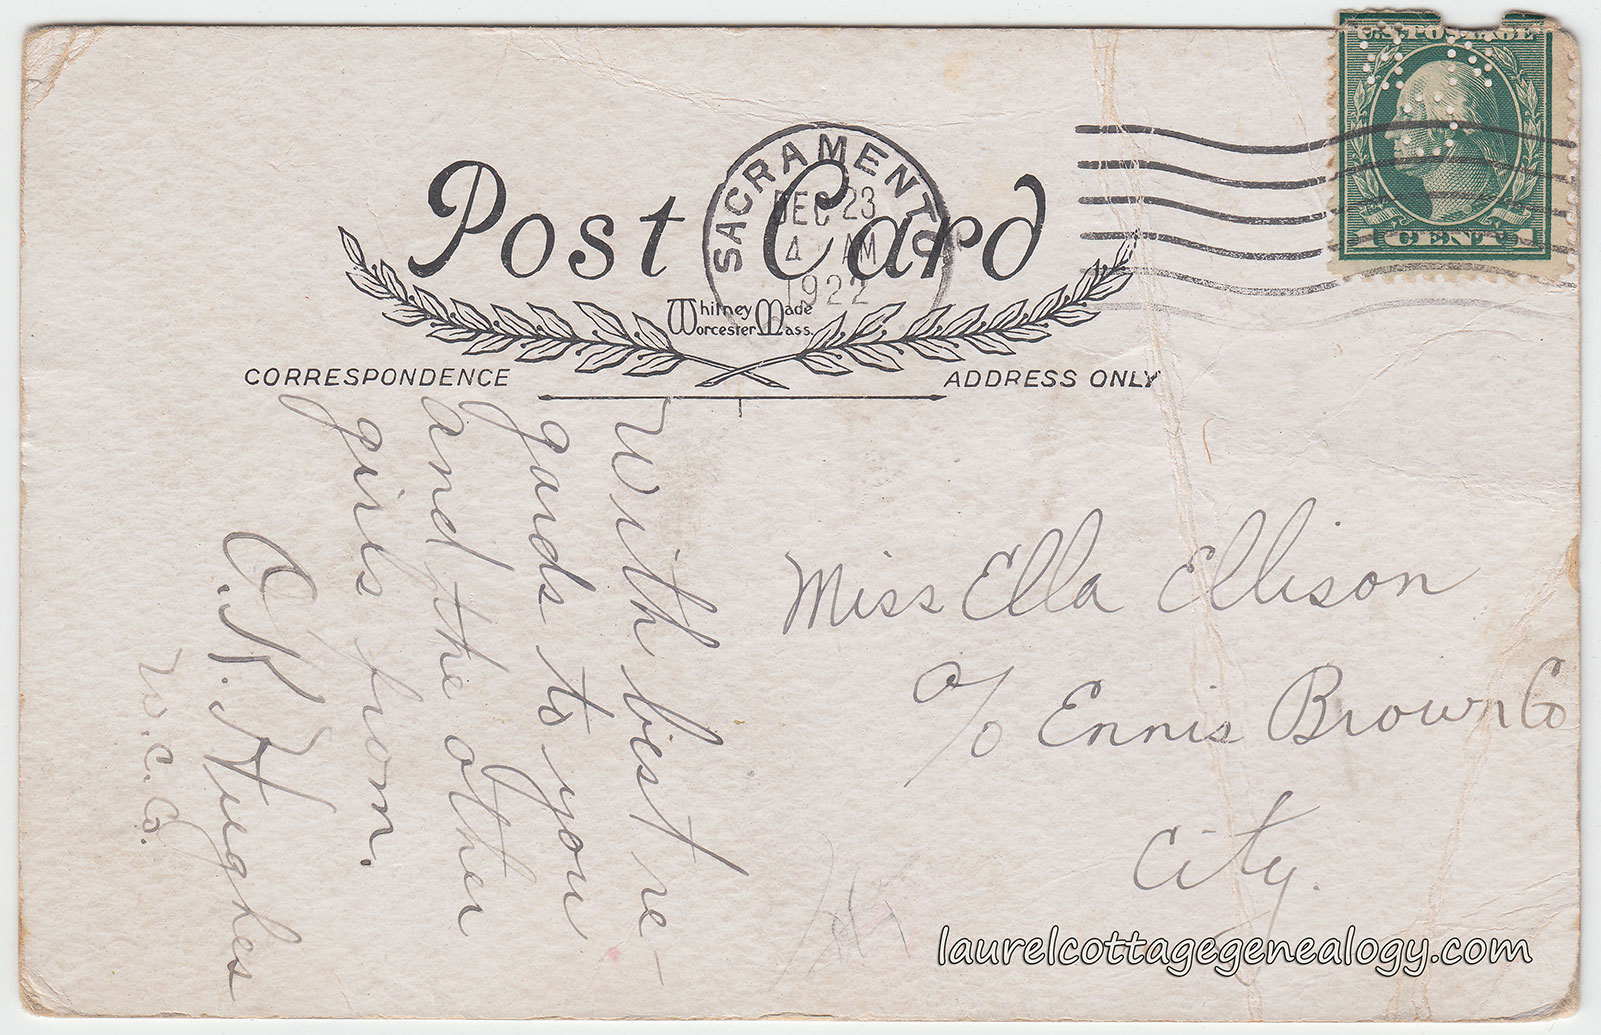 U.S. POSTAGE
1 CENT 1
SACRAMENTO
DEC 23
4 AM
1922
Post Card
Whitney Made
Worcester Mass.
CORRESPONDENCE
ADDRESS ONLY
With best re-
gards to you
and the other
girls from.
A. K. Hughes
W. C. Co.
Miss Ella Ellison
c/o Ennis Brown Co
City.
laurelcottagegenealogy.com